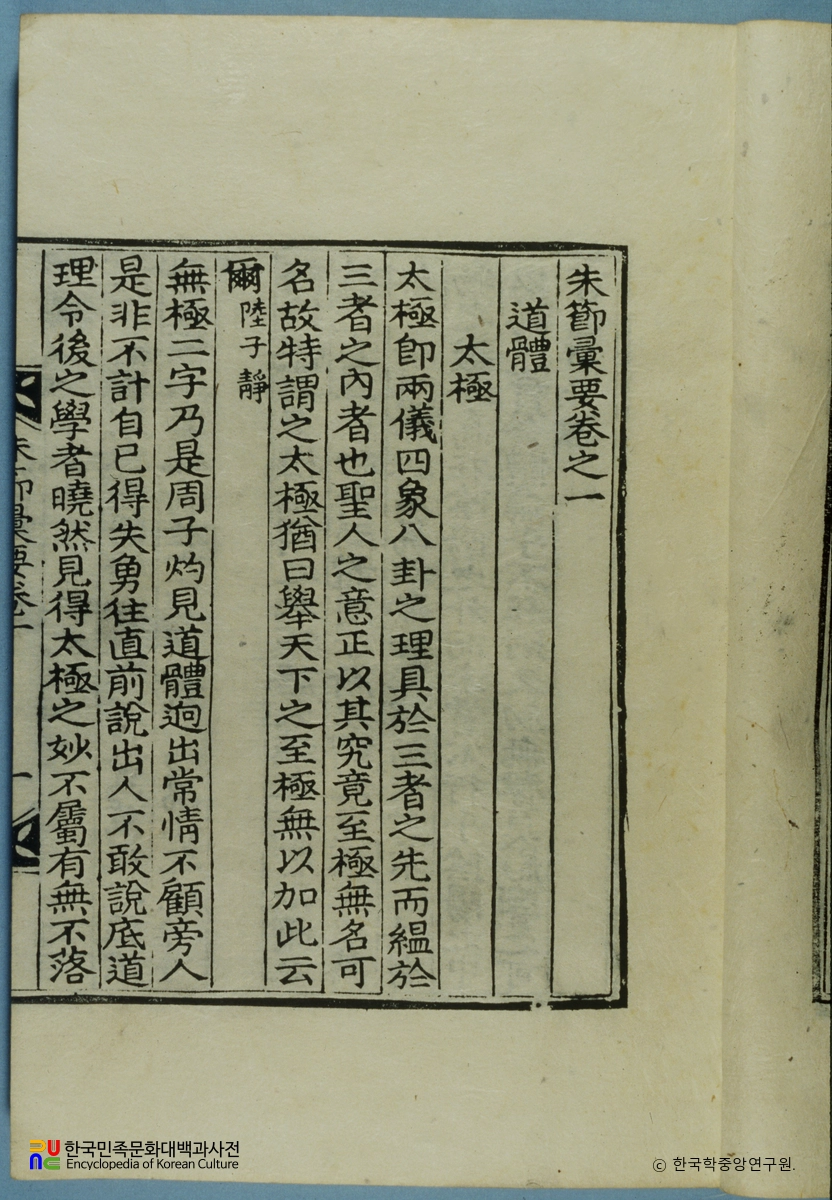 朱節彙要卷之一
道體
太極
太極卽兩儀四象八卦之理具於三者之先而縕於
三者之內者也聖人之意正以其究竟至極無名可
名故特謂之太極猶曰擧天下之至極無以加此云
爾 陸子靜
無極二字乃是周子灼見道體逈出常情不顧旁人
是非不計自己得失勇往直前說出人不敢說底道
理令後之學者曉然見得太極之妙不屬有無不落
朱節彙要卷一
一
한국민족문화대백과사전
Encyclopedia of Korean Culture
ⓒ 한국학중앙연구원.